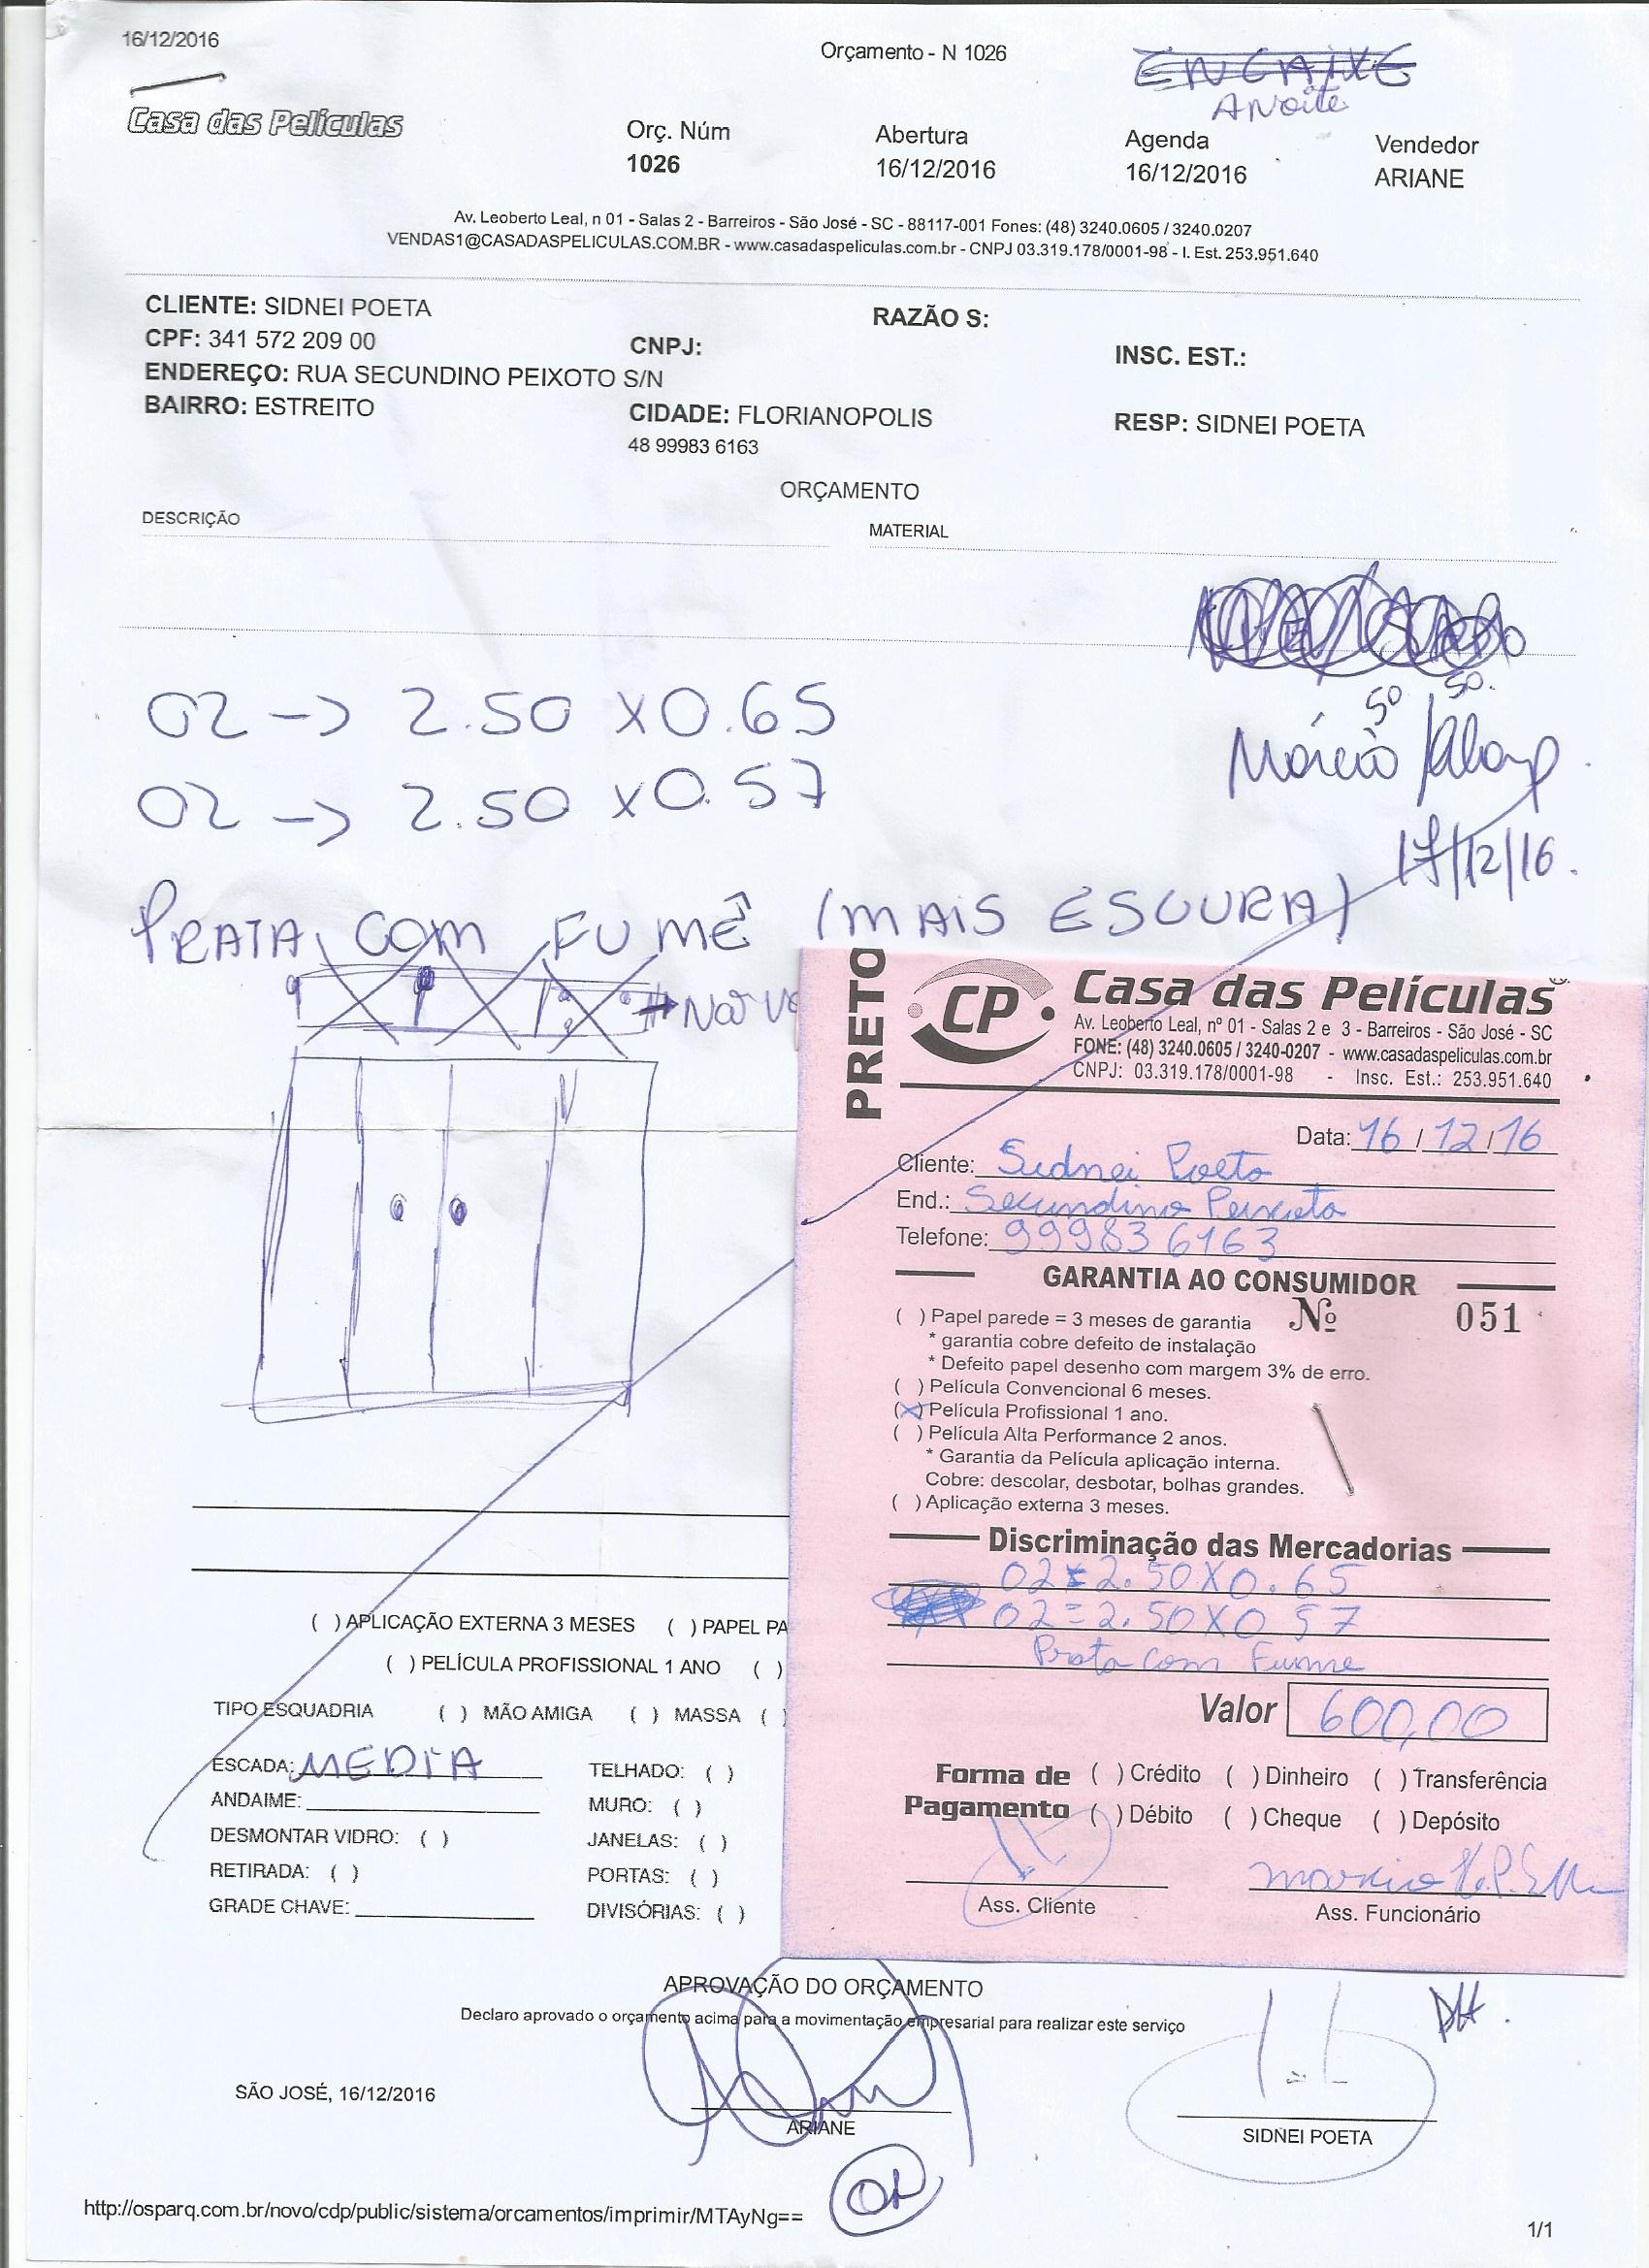 16/12/2016
Orçamento - N 1026
ENCAIXE
ANOITE
Casa das Películas
Orç. Núm
1026
Abertura
16/12/2016
Agenda
16/12/2016
Vendedor
ARIANE
Av. Leoberto Leal, n 01 - Salas 2 - Barreiros - São José - SC - 88117-001 Fones: (48) 3240.0605 / 3240.0207
VENDAS1@CASADASPELICULAS.COM.BR - www.casadaspeliculas.com.br - CNPJ 03.319.178/0001-98 - I. Est. 253.951.640
CLIENTE: SIDNEI POETA
RAZÃO S:
CPF: 341 572 209 00
CNPJ:
INSC. EST.:
ENDEREÇO: RUA SECUNDINO PEIXOTO S/N
BAIRRO: ESTREITO
CIDADE: FLORIANOPOLIS
RESP: SIDNEI POETA
48 99983 6163
ORÇAMENTO
DESCRIÇÃO
MATERIAL
02 -> 2.50 X 0.65
50 50.
Márcio /
02 -> 2.50 X 0.57
17/12/16.
PRATA COM FUMÊ (MAIS ESCURA)
PRETO
CP Casa das Películas
Av. Leoberto Leal, nº 01 - Salas 2 e 3 - Barreiros - São José - SC
FONE: (48) 3240.0605 / 3240-0207 - www.casadaspeliculas.com.br
CNPJ: 03.319.178/0001-98 - Insc. Est.: 253.951.640
Data: 16 / 12 / 16
Cliente: Sidnei Poeta
End.: Secundino Peixoto
Telefone: 99983 6163
GARANTIA AO CONSUMIDOR
( ) Papel parede = 3 meses de garantia
Nº 051
* garantia cobre defeito de instalação
* Defeito papel desenho com margem 3% de erro.
( ) Película Convencional 6 meses.
(X) Película Profissional 1 ano.
( ) Película Alta Performance 2 anos.
* Garantia da Película aplicação interna.
Cobre: descolar, desbotar, bolhas grandes.
( ) Aplicação externa 3 meses.
Discriminação das Mercadorias
02 = 2.50 X 0.65
02 = 2.50 X 0 57
Prata com Fume
Valor 600,00
Forma de Pagamento
( ) Crédito ( ) Dinheiro ( ) Transferência
( ) Débito ( ) Cheque ( ) Depósito
Ass. Cliente
Ass. Funcionário
( ) APLICAÇÃO EXTERNA 3 MESES ( ) PAPEL PA
( ) PELÍCULA PROFISSIONAL 1 ANO ( )
TIPO ESQUADRIA ( ) MÃO AMIGA ( ) MASSA ( )
ESCADA: MEDIA
TELHADO: ( )
ANDAIME:
MURO: ( )
DESMONTAR VIDRO: ( )
JANELAS: ( )
RETIRADA: ( )
PORTAS: ( )
GRADE CHAVE:
DIVISÓRIAS: ( )
APROVAÇÃO DO ORÇAMENTO
Declaro aprovado o orçamento acima para a movimentação empresarial para realizar este serviço
SÃO JOSÉ, 16/12/2016
ARIANE
SIDNEI POETA
http://osparq.com.br/novo/cdp/public/sistema/orcamentos/imprimir/MTAyNg==
1/1